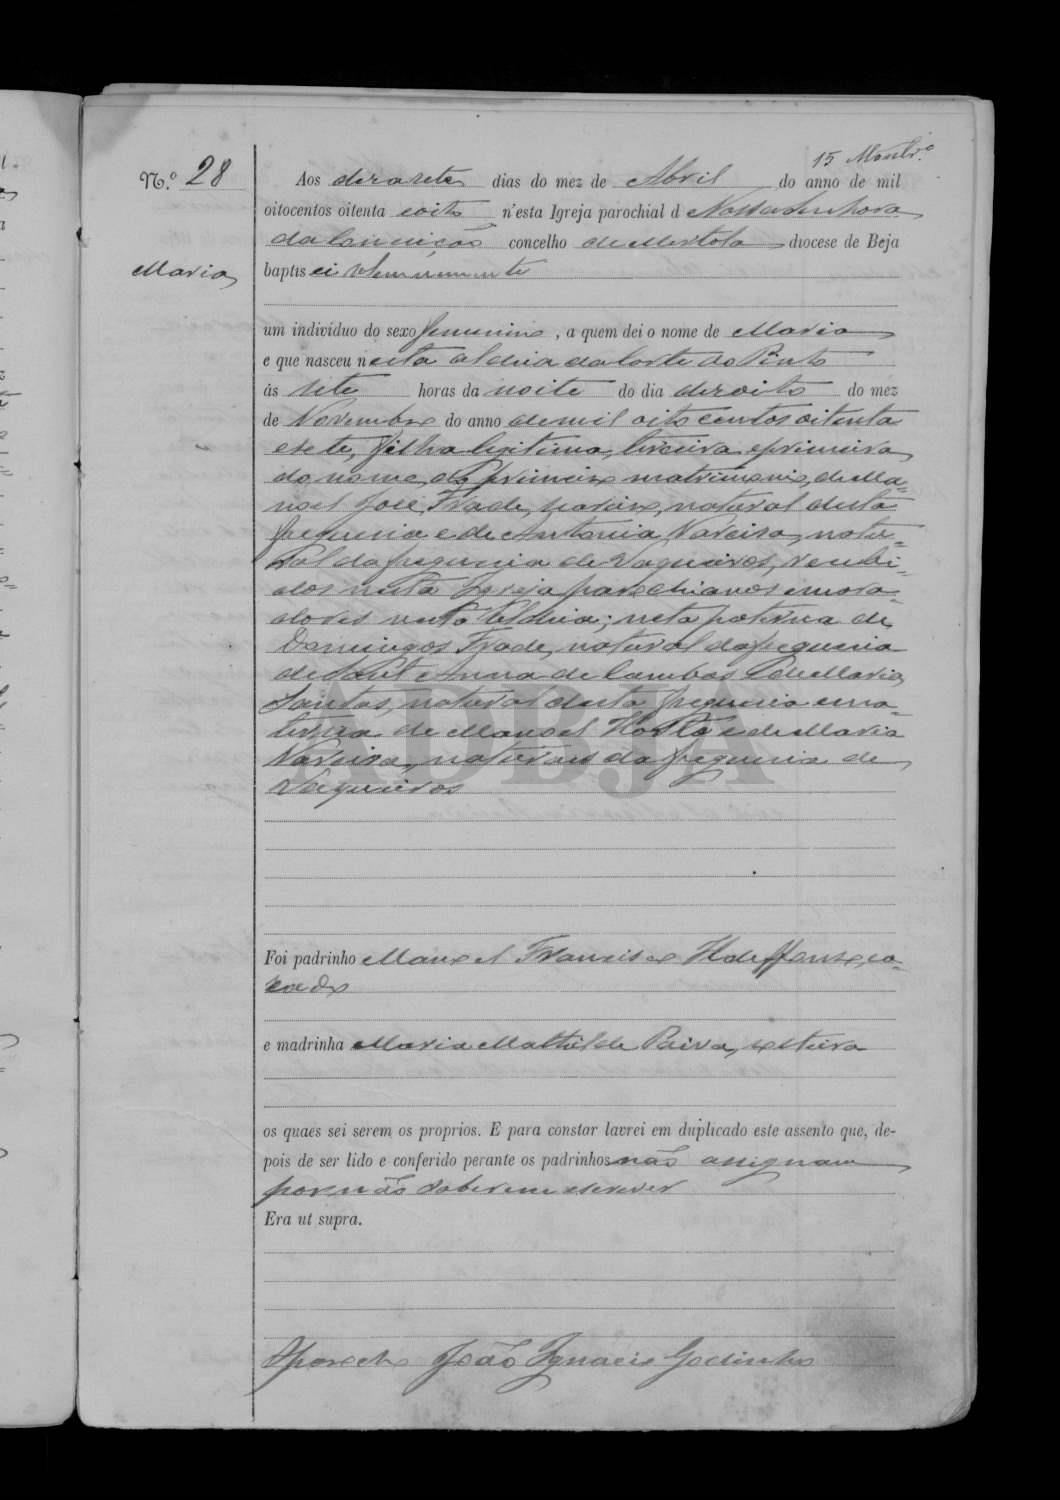 15 Montr.º
N.º 28 Aos dezasete dias do mez de Abril do anno de mil
oitocentos oitenta e oito n'esta Igreja parochial d Nossa Senhora
da Conceição concelho de Mertola diocese de Beja
Maria baptisei solemnemente
um individuo do sexo femenino, a quem dei o nome de Maria
e que nasceu nesta aldeia da Corte do Pinto
ás sete horas da noite do dia dezoito do mez
de Novembro do anno de mil oito centos oitenta
e sete, filha legitima, terceira e primeira
do nome, do primeiro matrimonio, de Ma=
noel José Frade, natural desta
freguezia e de Antonia Vareira, natu=
ral da freguezia de Vaqueiros, recebi=
dos nesta Igreja parochianos e mora=
dores nesta Aldeia; neta paterna de
Domingos Frade, natural da freguezia
de Sant'Anna de Cambas e de Maria
Santos, natural desta freguezia e ma=
terna de Manoel Horta e de Maria
Vareira, naturaes da freguezia de
Vaqueiros
ADBJA
Foi padrinho Manoel Francisco Ildeffonso, ca=
zado
e madrinha Maria Mathilde Paiva, solteira
os quaes sei serem os proprios. E para constar lavrei em duplicado este assento que, de-
pois de ser lido e conferido perante os padrinhos não assignam
por não saberem escrever
Era ut supra.
O Parocho João Ignacio Godinho